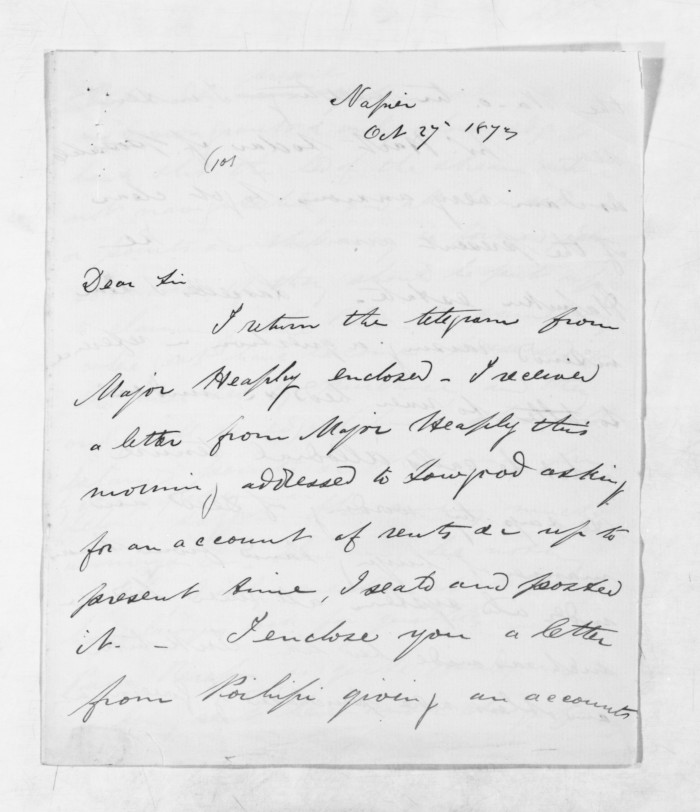 Napier
Oct 27th 1873
Dear Sir
I return the telegram from
Major Heaphy enclosed - I received
a letter from Major Heaphy this
morning addressed to Lowgood asking
for an account of rents &c up to
present time, I read and posted
it. - I enclose you a letter
from Poihipi giving an accounts